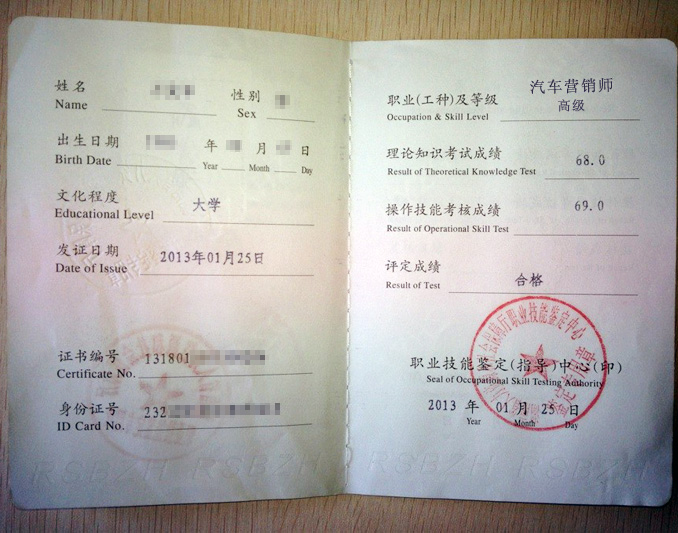 姓名
Name
性别
Sex
出生日期
Birth Date
年
Year
月
Month
日
Day
文化程度
Educational Level
大学
发证日期
Date of Issue
2013年01月25日
证书编号
Certificate No.
131801
身份证号
ID Card No.
232
RSBZH RSBZH
职业(工种)及等级
Occupation & Skill Level
汽车营销师
高级
理论知识考试成绩
Result of Theoretical Knowledge Test
68.0
操作技能考核成绩
Result of Operational Skill Test
69.0
评定成绩
Result of Test
合格
职业技能鉴定(指导)中心(印)
Seal of Occupational Skill Testing Authority
2013 年 01 月 25 日
Year Month Day
RSBZH RSBZH